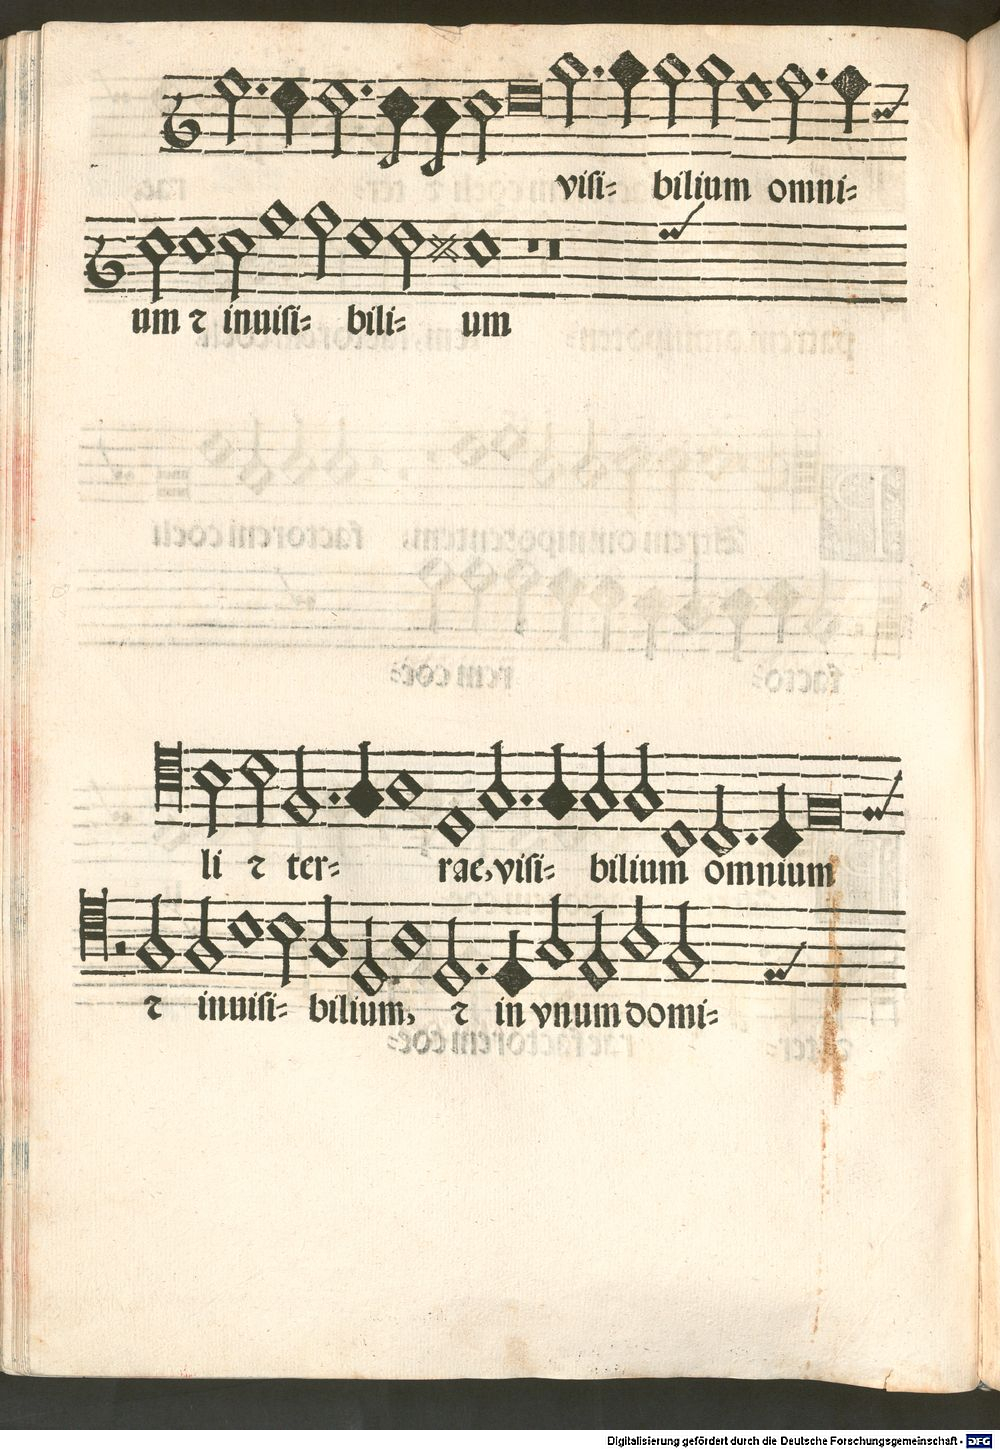 visi= bilium omni=
um ⁊ inuisi= bili= um
li ⁊ ter= rae, visi= bilium omnium
⁊ inuisi= bilium, ⁊ in vnum domi=
Digitalisierung gefördert durch die Deutsche Forschungsgemeinschaft - DFG